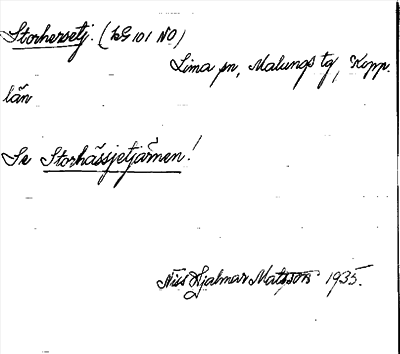 Storhersetj. (bG 101 NO)
Lima sn, Malungs tg, Kopp.
län
Se Storhässjetjärnen!
Niss Hjalmar Matsson 1935.